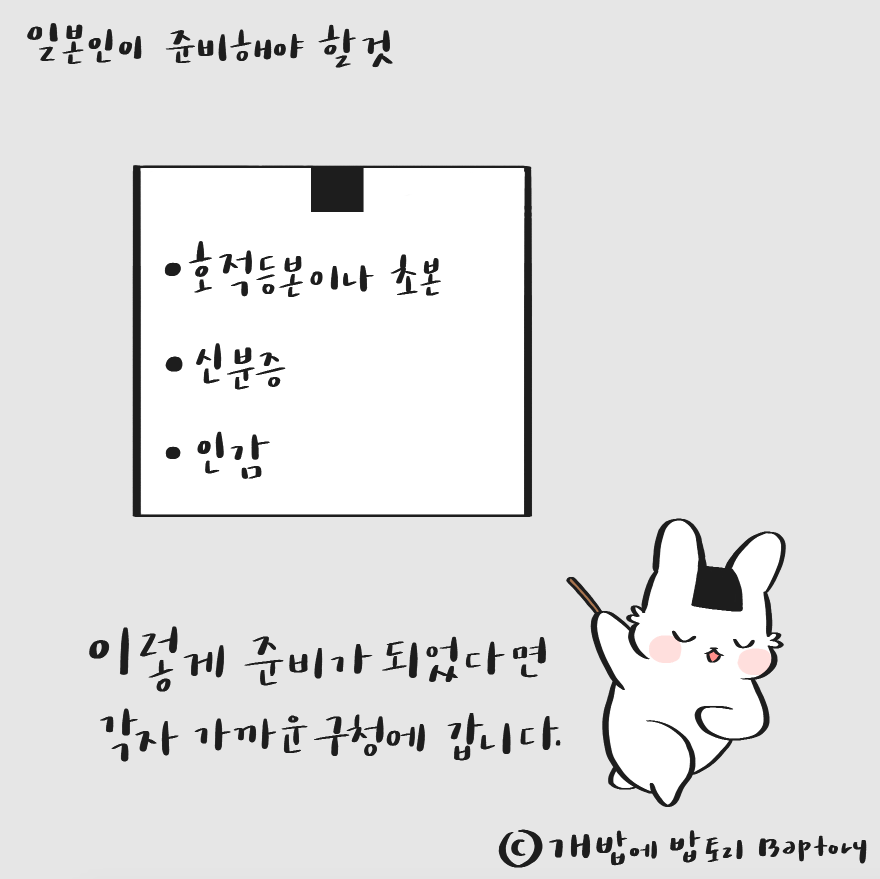 일본인이 준비해야 할 것
• 호적등본이나 초본
• 신분증
• 인감
이렇게 준비가 되었다면
각자 가까운 구청에 갑니다.
© 개밥에 밥토리 Baptory